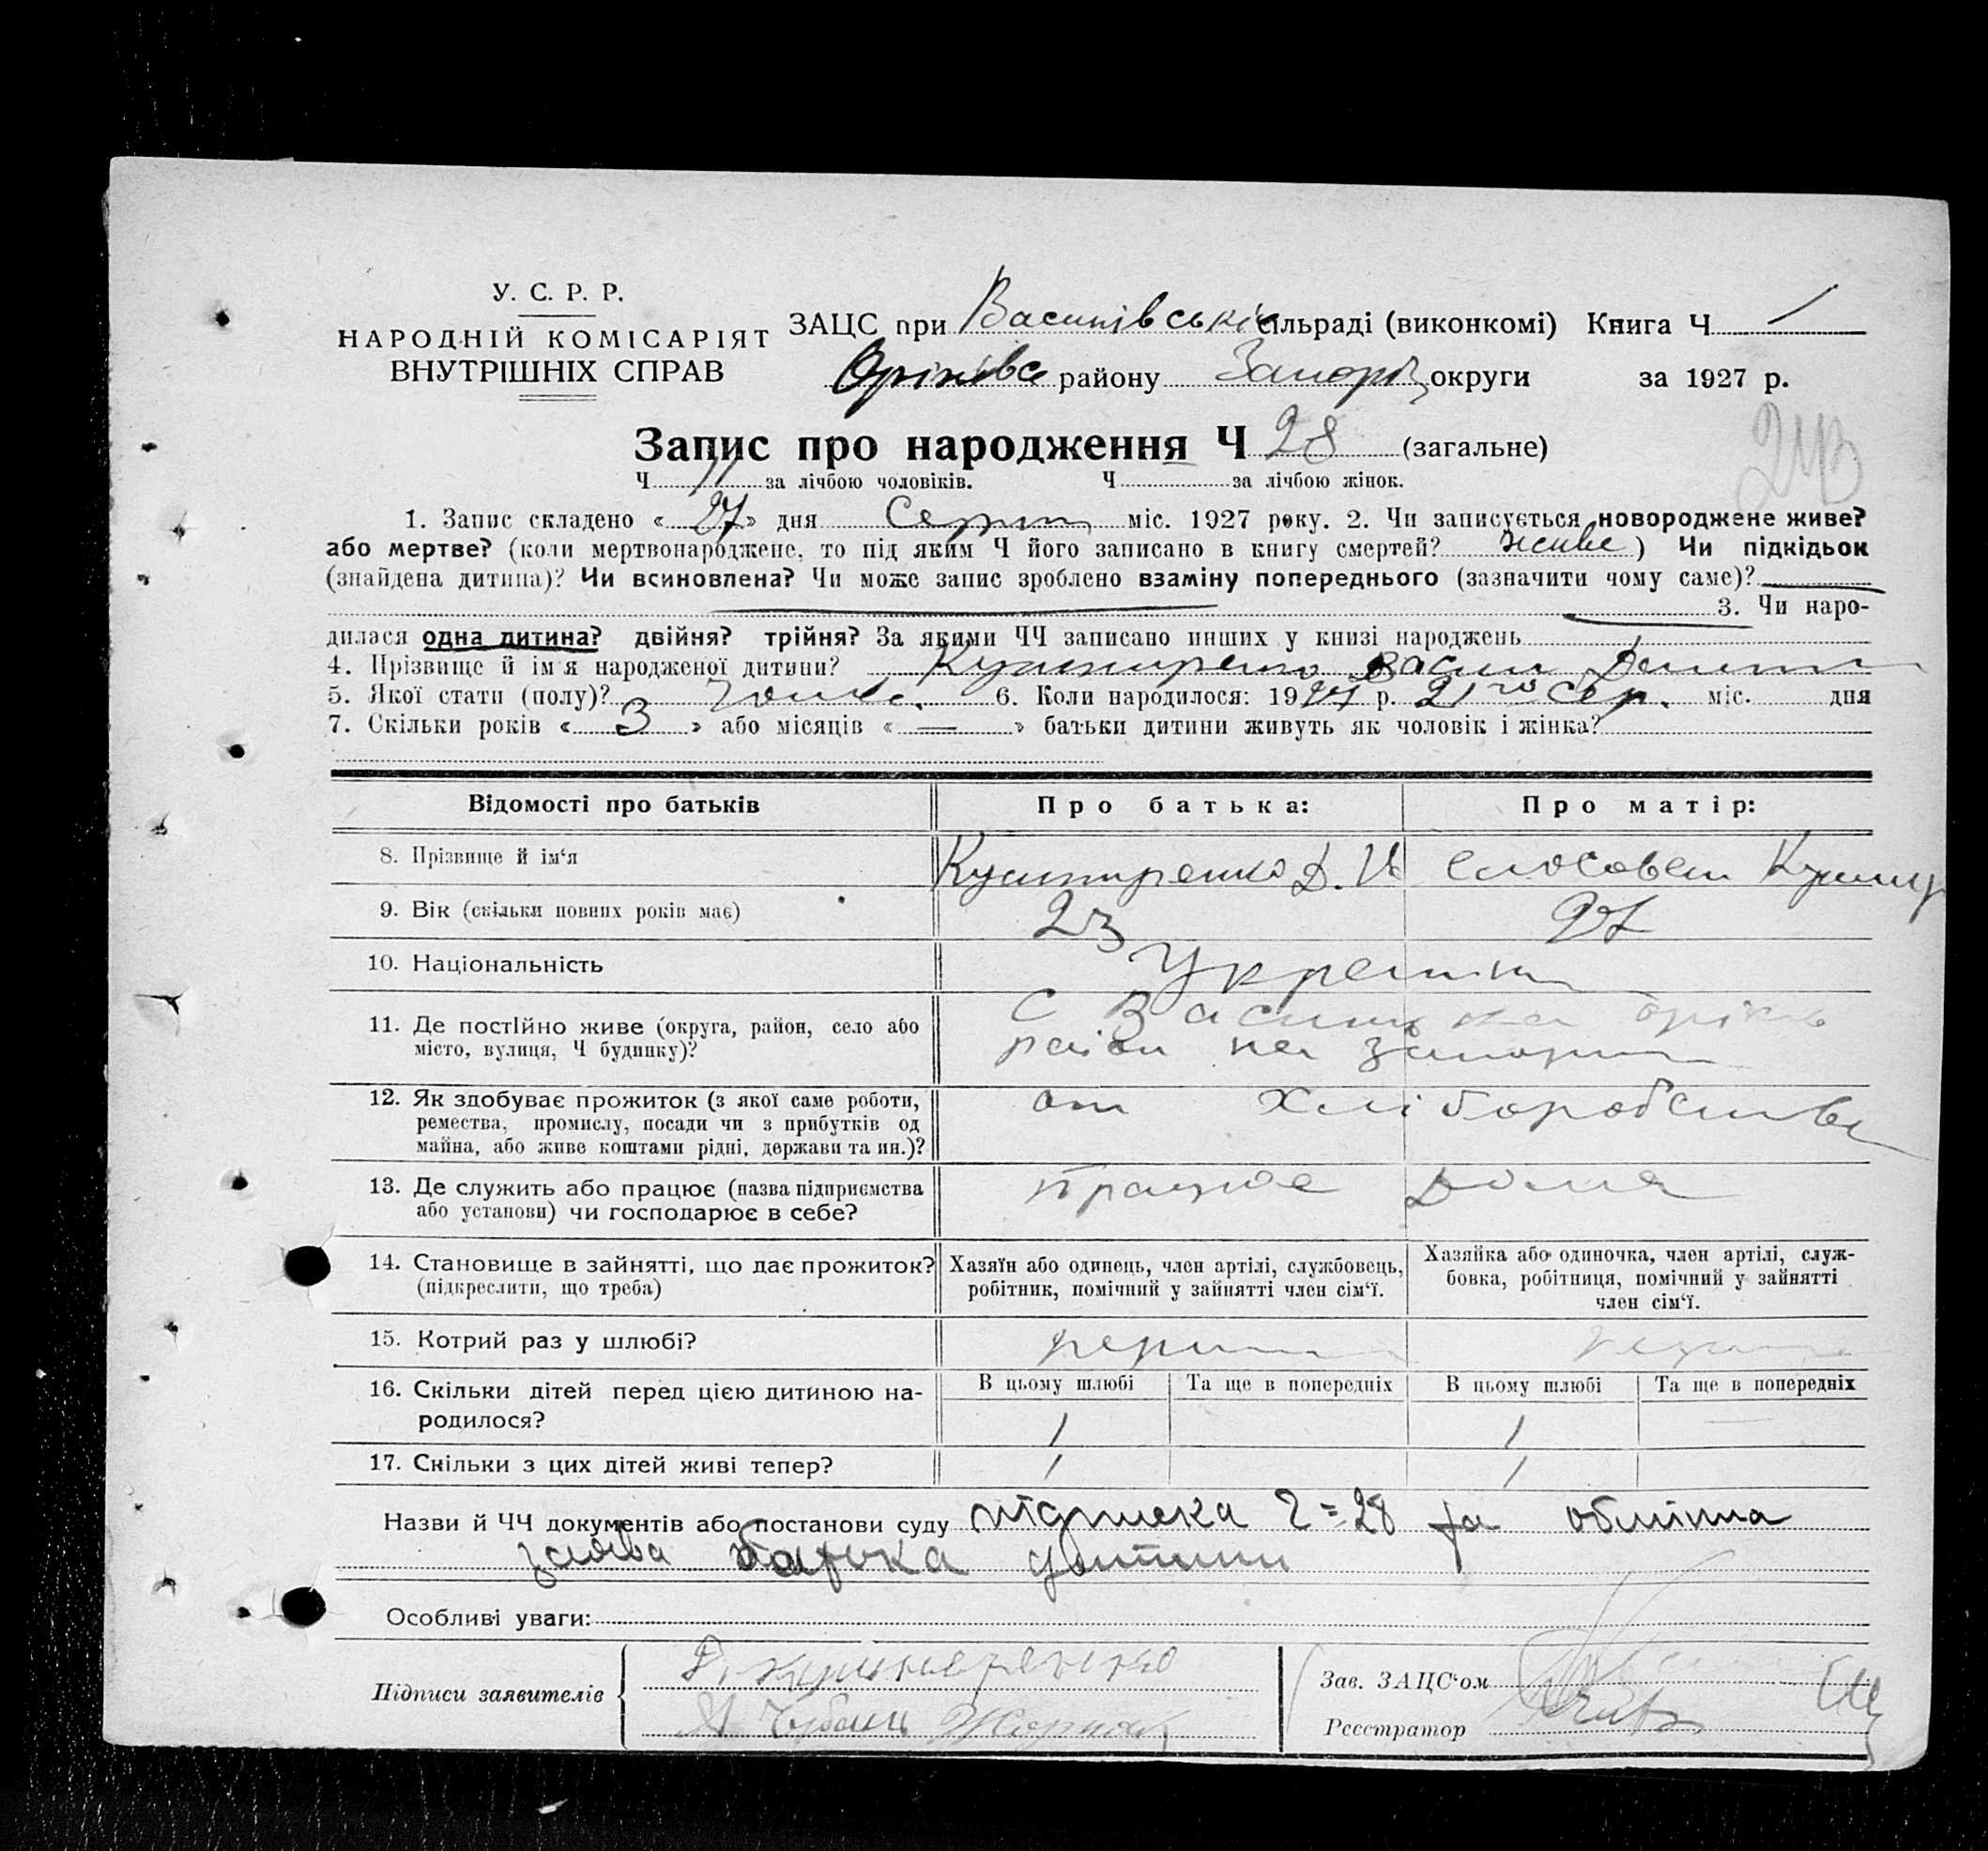 У. С. Р. Р.
НАРОДНІЙ КОМІСАРІЯТ
ВНУТРІШНІХ СПРАВ
ЗАЦС при Василівські сільраді (виконкомі) Книга Ч 1
Оріхівс району Запоріз округи за 1927 р.
Запис про народження Ч 28 (загальне)
Ч 11 за лічбою чоловіків. Ч за лічбою жінок.
1. Запис складено « 27 » дня Серпн міс. 1927 року. 2. Чи записується новороджене живе?
або мертве? (коли мертвонароджене, то під яким Ч його записано в книгу смертей? живе) Чи підкідьок
(знайдена дитина)? Чи всиновлена? Чи може запис зроблено взаміну попереднього (зазначити чому саме)?
3. Чи наро-
дилася одна дитина? двійня? трійня? За якими ЧЧ записано инших у книзі народжень
4. Прізвище й ім'я народженої дитини? Васил
5. Якої стати (полу)? 6. Коли народилося: 1927 р. 21го сер. міс. дня
7. Скільки років « 3 » або місяців « — » батьки дитини живуть як чоловік і жінка?
Відомості про батьків Про батька: Про матір:
8. Прізвище й ім'я Д. И
9. Вік (скільки повних років має) 23 27
10. Національність
11. Де постійно живе (округа, район, село або
місто, вулиця, Ч будинку)?
С Васи
12. Як здобуває прожиток (з якої саме роботи,
ремества, промислу, посади чи з прибутків од
майна, або живе коштами рідні, держави та ин.)?
от Хліборобства
13. Де служить або працює (назва підприємства
або установи) чи господарює в себе?
працює дома
14. Становище в зайнятті, що дає прожиток?
(підкреслити, що треба)
Хазяїн або одинець, член артілі, службовець,
робітник, помічний у зайнятті член сім'ї.
Хазяйка або одиночка, член артілі, служ-
бовка, робітниця, помічний у зайнятті
член сім'ї.
15. Котрий раз у шлюбі?
16. Скільки дітей перед цією дитиною на-
родилося?
В цьому шлюбі Та ще в попередніх В цьому шлюбі Та ще в попередніх
1 1
17. Скільки з цих дітей живі тепер? 1 1
Назви й ЧЧ документів або постанови суду підписка 28 та
заява батька дитини
Особливі уваги:
Підписи заявителів
Зав. ЗАЦС'ом
Реєстратор